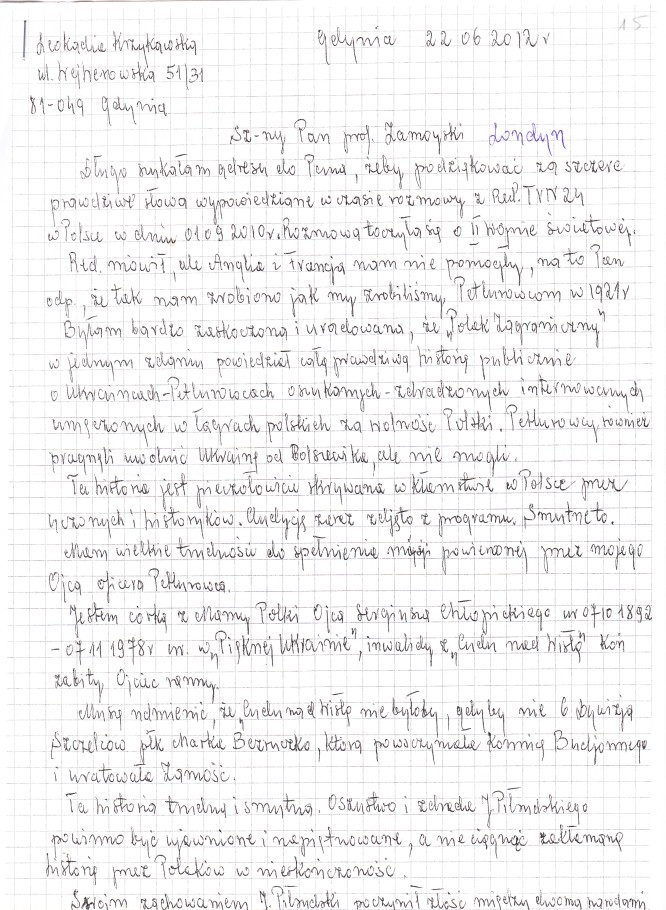 15
Leokadia Krzykawska Gdynia 22 06 2012 r
ul. Wejherowska 51/31
81-049 Gdynia
Sz-ny Pan prof. Zamoyski Londyn
Długo szukałam adresu do Pana, żeby podziękować za szczere
prawdziwe słowa wypowiedziane w czasie rozmowy z Red. TVN 24
w Polsce w dniu 01.09 2010r. Rozmowa toczyła się o II Wojnie Światowej.
Red. mówił, ale Anglia i Francja nam nie pomogły, na to Pan
odp., że tak nam zrobiono jak my zrobiliśmy Petlurowcom w 1921r
Byłam bardzo zaskoczona i uradowana, że „Polak Zagraniczny"
w jednym zdaniu powiedział całą prawdziwą historę publicznie
o Ukraińcach-Petlurowcach oszukanych-zdradzonych internowanych
umęczonych w łagrach polskich za wolność Polski. Petlurowcy również
pragnęli uwolnić Ukrainę od Bolszewika, ale nie mogli.
Ta historia jest pieczołowicie skrywana w kłamstwie w Polsce przez
uczonych i historyków. Audycję zaraz zdjęto z programu. Smutne to.
Mam wielkie trudności do spełnienia misji powierzonej przez mojego
Ojca oficera Petlurowca.
Jestem córką z Mamy Polki Ojca Sergiusza Chłopickiego ur 07 10 1892
- 07 11 1978r ur. w „Pięknej Ukrainie", inwalidy z „Cudu nad Wisłą" Koń
zabity, Ojciec ranny.
Muszę nadmienić, że „Cudu nad Wisłą nie byłoby, gdyby nie 6 Dywizja
Szczelców płk Marka Bezruczko, która powszczymała Konnią Budjonnego
i uratowała Zamość.
Ta historia trudna i smutna. Oszustwo i zdrada J. Piłsudskiego
powinno być ujawnione i napiętnowane, a nie ciągnąć zakłamaną
historę przez Polaków w nieskończoność.
Swoim zachowaniem J. Piłsudski poczynił złość między dwoma narodami